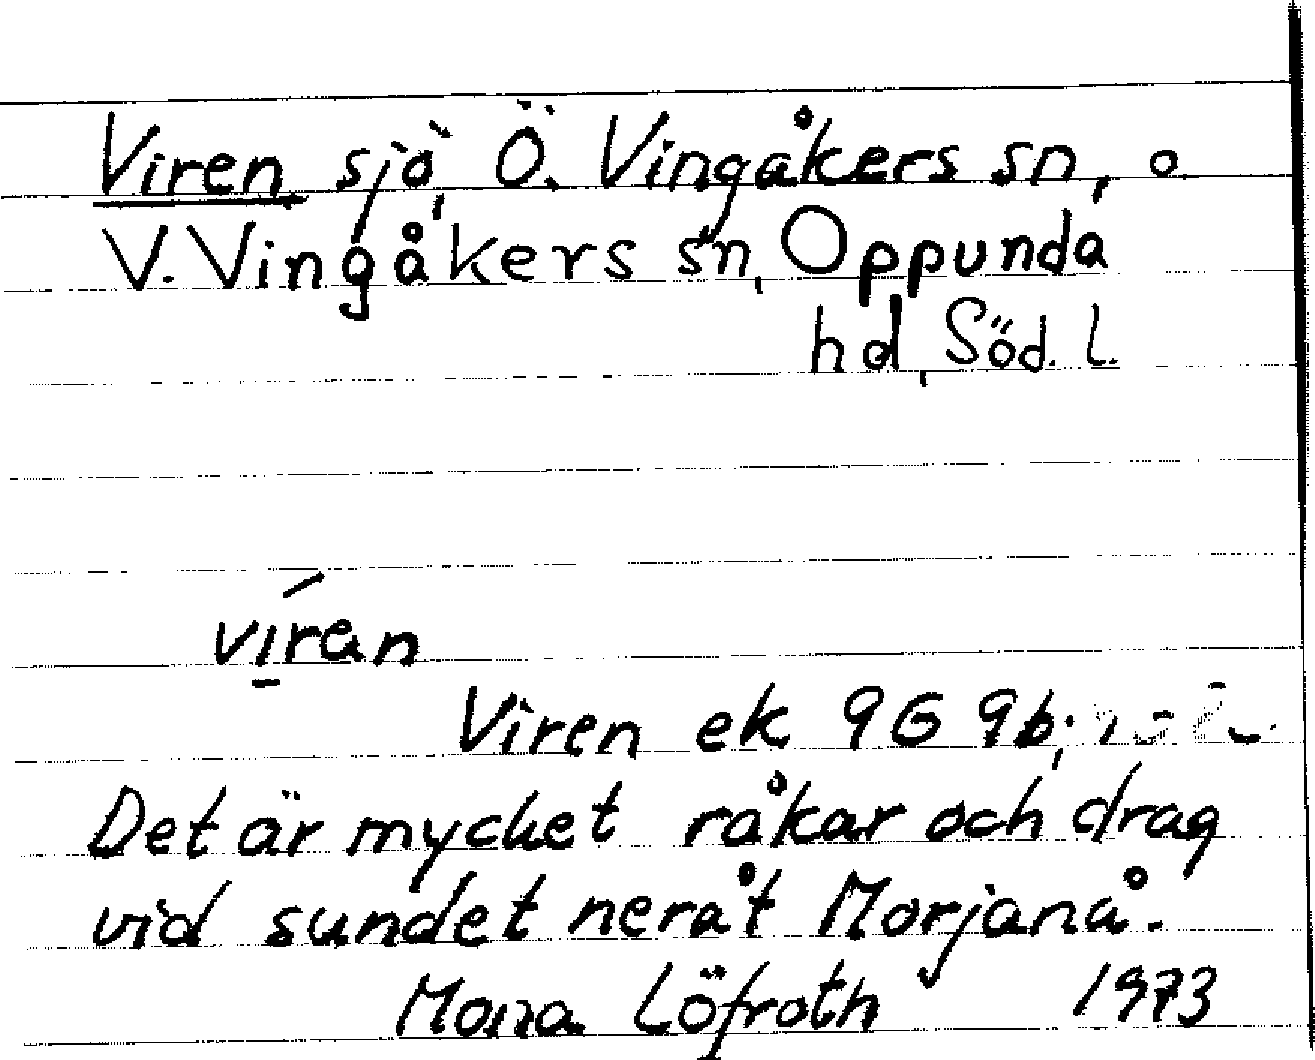 Viren, sjö, Ö. Vingåkers sn, o.
V. Vingåkers sn, Oppunda
hd, Söd. L.
víran
Viren ek 9G 9b;
Det är mycket råkar och drag
vid sundet neråt Morjanå.
Mona Löfroth 1973